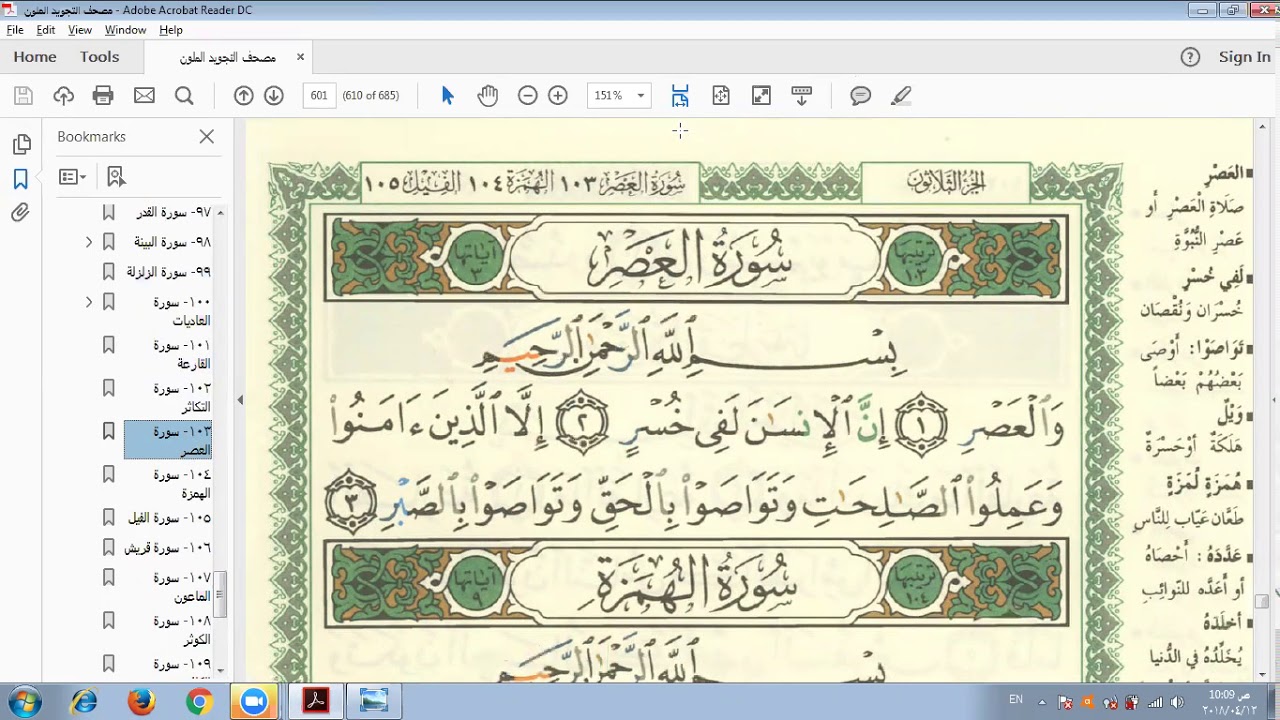 مصحف التجويد الملون - Adobe Acrobat Reader DC
File Edit View Window Help
Home Tools مصحف التجويد الملون × Sign In
601 (610 of 685) 151%
Bookmarks
٩٧- سورة القدر
٩٨- سورة البينة
٩٩- سورة الزلزلة
١٠٠- سورة
العاديات
١٠١- سورة
القارعة
١٠٢- سورة
التكاثر
١٠٣- سورة
العصر
١٠٤- سورة
الهمزة
١٠٥- سورة الفيل
١٠٦- سورة قريش
١٠٧- سورة
الماعون
١٠٨- سورة
الكوثر
١٠٩- سورة
الجزء الثلاثون
سورة العصر ١٠٣ الهمزة ١٠٤ الفيل ١٠٥
ترتيبها ١٠٣ سُورَةُ الْعَصْرِ آياتها ٣
بِسْمِ ٱللَّهِ ٱلرَّحْمَٰنِ ٱلرَّحِيمِ
وَٱلْعَصْرِ ١ إِنَّ ٱلْإِنسَٰنَ لَفِى خُسْرٍ ٢ إِلَّا ٱلَّذِينَ ءَامَنُوا۟
وَعَمِلُوا۟ ٱلصَّٰلِحَٰتِ وَتَوَاصَوْا۟ بِٱلْحَقِّ وَتَوَاصَوْا۟ بِٱلصَّبْرِ ٣
ترتيبها ١٠٤ سُورَةُ الْهُمَزَةِ آياتها ٩
بِسْمِ ٱللَّهِ ٱلرَّحْمَٰنِ ٱلرَّحِيمِ
العَصْرِ
صَلاةِ الْعَصْرِ أَو
عَصْرِ النُّبُوَّةِ
لَفِي خُسْرٍ
خُسْرَانٍ وَنُقْصَان
تَوَاصَوْا: أَوْصَى
بَعْضُهُمْ بَعْضاً
وَيْلٌ
هَلَكَةٌ أوْ حَسْرَةٌ
هُمَزَةٍ لُمَزَةٍ
طَعَّان عَيّاب لِلنَّاسِ
عَدَّدَهُ: أَحْصَاهُ
أو أعَدَّه للنّوائِبِ
أخلَدَهُ
يُخَلِّدُهُ في الدُّنيا
EN
10:09 ص
٢٠١٨/٠٤/١٢